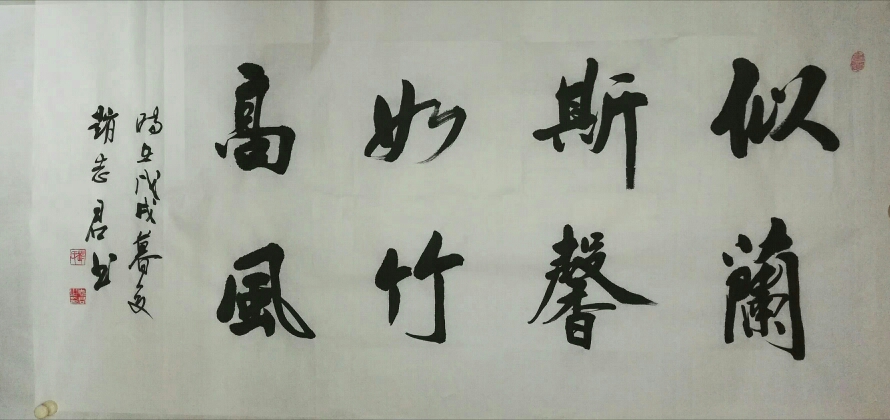 似蘭
斯馨
如竹
高風
時在戊戌暮夏
趙志君书